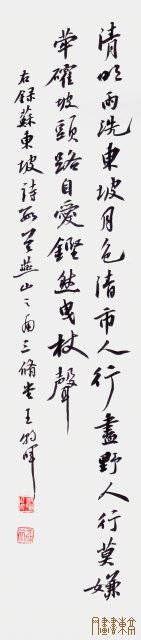 清明雨洗東坡月色清市人行盡野人行莫嫌
犖確坡頭路自愛鏗然曳杖聲
右録蘇東坡詩 燕山之南三脩堂王 暉